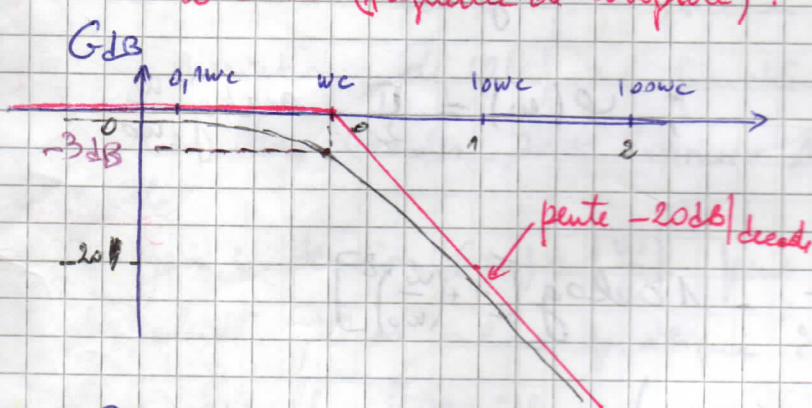 GdB
0,1wc wc 10wc 100wc
0 0 1 2
-3dB
pente -20dB/decade
-20